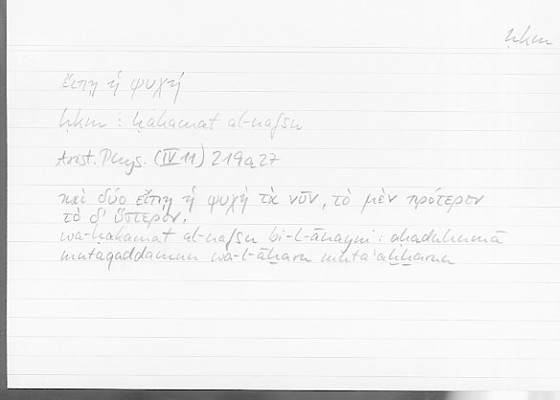 ḥkm
εἴπῃ ἡ ψυχή
ḥkm : ḥakamat al-nafsu
Arist. Phys. (IV 11) 219a27
καὶ δύο εἴπῃ ἡ ψυχὴ τὰ νῦν, τὸ μὲν πρότερον
τὸ δ' ὕστερον,
wa-ḥakamat al-nafsu bi-l-ānayni : aḥaduhumā
mutaqaddamun wa-l-āḫaru muta'aḫḫarun